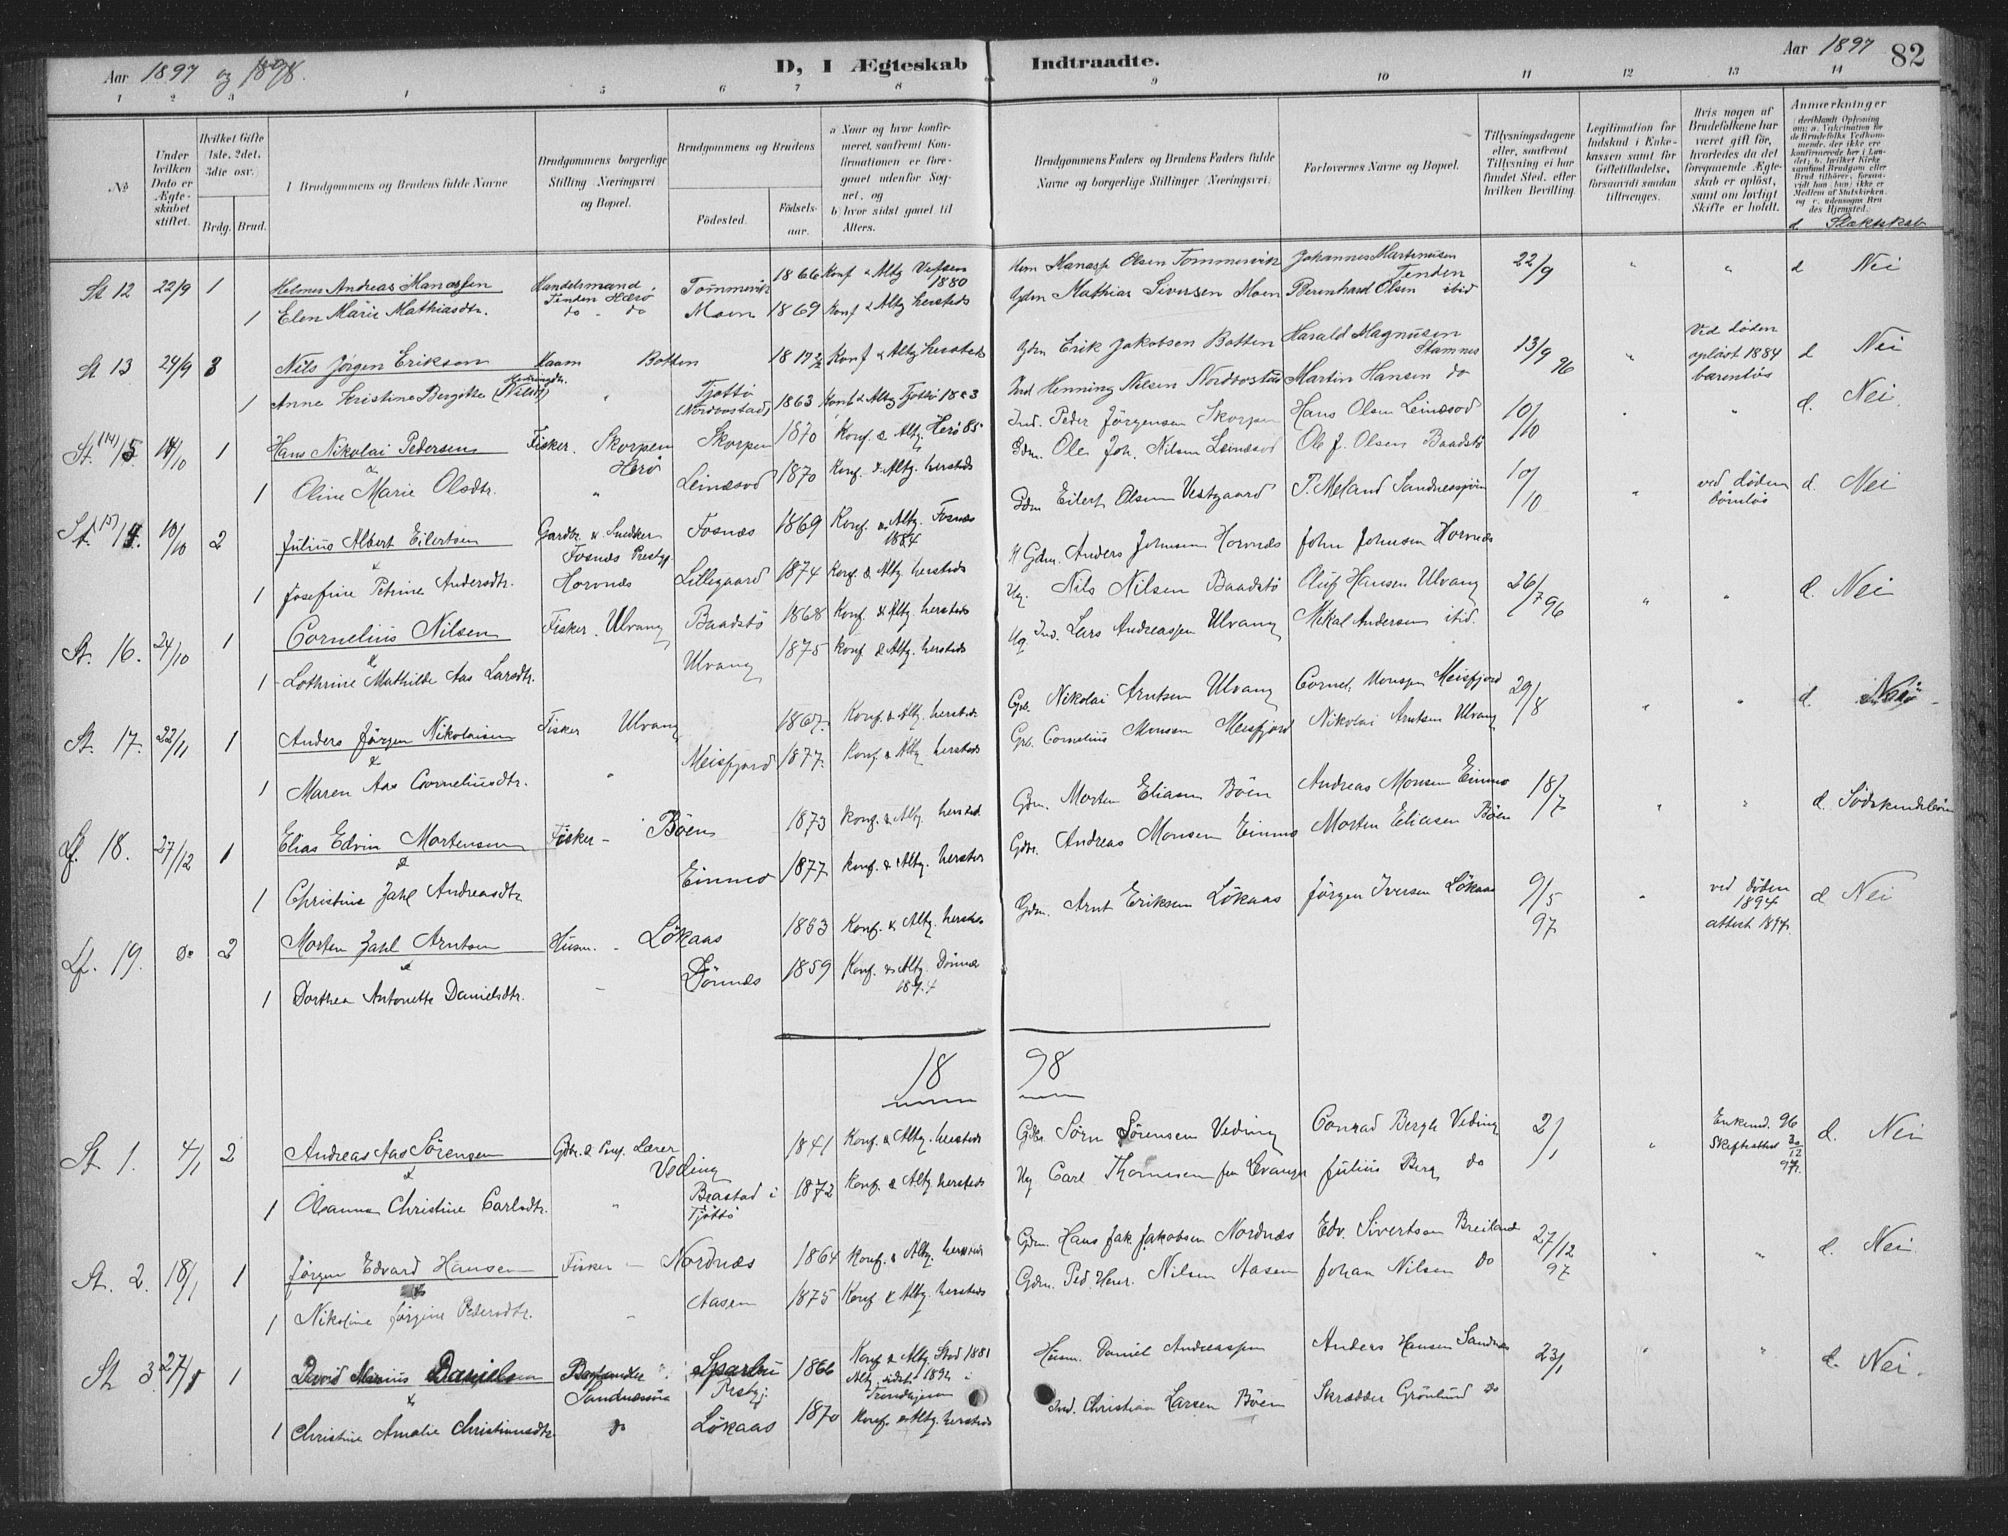 Aar 1897 og 1898.
D, I Ægteskab Indtraadte.
Aar 1897 82
1 2 3 4 5 6 7 8 9 10 11 12 13 14
No
Under hvilken Dato er Ægteskabet stiftet.
Hvilket Gifte (1ste, 2det, 3die osv.)
Brdg. Brud.
I Brudgommens og Brudens fulde Navne
Brudgommens borgerlige Stilling (Næringsvei) og Bopæl.
Brudgommens og Brudens
Födested.
Födsels-aar.
a Naar og hvor konfirmeret, saafremt Konfirmationen er foregaaet udenfor Sognet, og
b hvor sidst gaaet til Alters.
Brudgommens Faders og Brudens Faders fulde Navne og borgerlige Stillinger (Næringsvei).
Forlovernes Navne og Bopæl.
Tillysningsdagene eller, saafremt Tillysning ei har fundet Sted, efter hvilken Bevilling.
Legitimation for Indskud i Enkekassen samt for Giftetilladelse, forsaavidt saadan tiltrænges.
Hvis nogen af Brudefolkene har været gift før, hvorledes da det foregaaende Ægteskab er opløst, samt om lovligt Skifte er holdt.
Anmærkninger
d Slægtskab
St 12 22/9 1 Helmer Andreas Manassen Handelsmand Tenden Herø Tømmervik 1866 Konf & Altg Vefsen 1880 Manasse Olsen Tømmervik Johannes Martinusen Tenden 22/9 " " d Nei
1 Elen Marie Mathiasdtr. do " do Moen 1869 Konf & Altg hersteds Gdm Mathias Siversen Moen Bernhard Olsen ibid
St 13 24/9 3 Nils Jørgen Eriksen Botten Konf & Altg hersteds Gdm Erik Jakobsen Botten Harald Magnusen Stamnes 13/9 96 " Ved døden opløst 1884 barnløs d Nei
1 Anne Kristine Bergitte " Tjøttø (Nordvostad) 1863 Konf & Altg Tjøttø Ind Henning Nilsen Nordvostad Martin Hansen do
St. (14) 15 14/10 1 Hans Nikolai Pedersen Fisker. Skorpen Herø Skorpen 1870 Konf. & Altg. Herø 85 Ind. Peder Jørgensen Skorpen Hans Olsen Leinesod 10/10 " " d. Nei
1 Oline Marie Olsdtr. " Leinesod 1870 Konf. & Altg. hersteds Gdm. Ole Joh. Nilsen Leinesod Ole J. Olsen Baadstø
St. (15) 14. 10/10 2 Julius Albert Eilertsen Gardbr. & Snedker Fosnæs Prestgj Fosnæs 1869 Konf. & Altg. Fosnæs 1884 Gdm Eilert Olsen Vestgaard T. Meland Sandnessjøen 10/10 " ved døden børnløs d. Nei
1 Josefine Petrine Andersdtr. Hornnæs Lillegaard 1874 Konf. & Altg. hersteds Gdm. Anders Johnsen Hornnæs John Johnsen Hornnæs
St. 16. 24/10 1 Cornelius Nilsen Fisker. Ulvang Baadstø 1868 Konf. & Altg. hersteds Ug. Nils Nilsen Baadstø Oluf Hansen Ulvang 26/7 96 " " d. Nei
1 Lothrine Mathilde Aas Larsdtr. Ulvang 1875 Konf. & Altg. hersteds Ug Ind. Lars Andreassen Ulvang Mikal Andersen ibid.
St. 17. 22/11 1 Anders Jørgen Nikolaisen Fisker Ulvang 1867. Konf. & Altg. hersteds Gbr. Nikolai Arntsen Ulvang Cornel. Monsen Meisfjord 29/8 " " d Nei
1 Maren Aas Corneliusdtr. " Meisfjord 1877. Konf. & Altg. hersteds Gbr. Cornelius Monsen Meisfjord Nikolai Arntsen Ulvang
Lf. 18. 27/12 1 Elias Edvin Mortensen Fisker - Bøen 1873 Konf. & Altg. hersteds Gdm. Morten Eliasen Bøen Andreas Monsen Einmo 18/7 " " d. Sødskendebørn
1 Christine Zahl Andreasdtr. Einmo 1877 Konf. & Altg. hersteds Gdbr. Andreas Monsen Einmo Morten Eliasen Bøen
Lf. 19. Do 2 Morten Zahl Arntsen Husm. - Løkaas 1853 Konf. & Altg. hersteds Gdm. Arnt Eriksen Løkaas Jørgen Iversen Løkaas 9/5 97 " ved døden 1894 attest 1897. d Nei
1 Dorthea Antonette Danielsdtr. - Dønnæs 1859 Konf. & Altg. Dønnæs
18 98
St. 1. 4/1 2 Andreas Aas Sørensen Gdbr. & Lærer Veding 1841 Konf. & Altg. hersteds Gdbr. Søren Sørensen Veding Conrad Bergh Veding 2/1 " Enkemd. 96 Skifteattest 30/12 97. d. Nei
1 Christine Carlsdtr. " Brastad i Tjøttø 1872 Konf. & Altg. hersteds Ug Carl Thomesen fra Levanger Julius Berg do
St. 2. 18/1 1 Jørgen Edvard Hansen Fisker - Nordnæs 1864 Konf. & Altg. hersteds Gdm. Hans Jak. Jakobsen Nordnæs Edv. Sivertsen Breiland 27/12 97 " " d. Nei
1 Nikoline Jørgine Pedersdtr. - Aasen 1875 Konf & Altg. hersteds Gdm. Ped. Henr. Nilsen Aasen Johan Nilsen Do
St 3. 27/1 1 David Marius Danielsen Sandnessjøen Sparbu Prestgj. 1866 Konf. & Altg. Stod 1881 Altg. sidst 1892 i Trondhjem Husm. Daniel Andreassen Anders Hansen Sandnes 23/1 " " d. Nei.
1 Christine Amalie Christiansdtr do Løkaas 1870 Konf. & Altg. hersteds Ind. Christian Larsen Bøen Skrædder Grønlund do